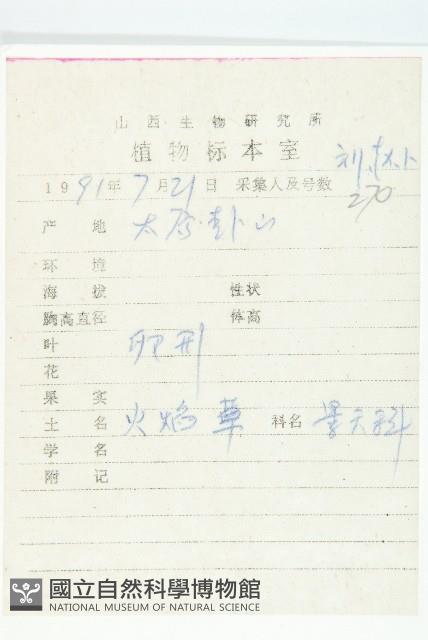 山西生物研究所
植物标本室
1991年7月21日 采集人及号数 刘
270
产地 太原卦山
环境
海拔 性状
胸高直径 体高
叶 卵形
花
果实
土名 火焰草 科名 景天科
学名
附记
國立自然科學博物館
NATIONAL MUSEUM OF NATURAL SCIENCE